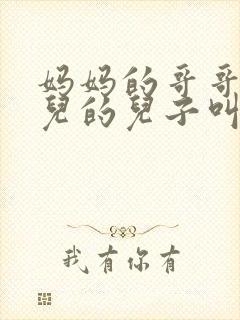 妈妈的哥哥
兒的兒子叫
我有你有